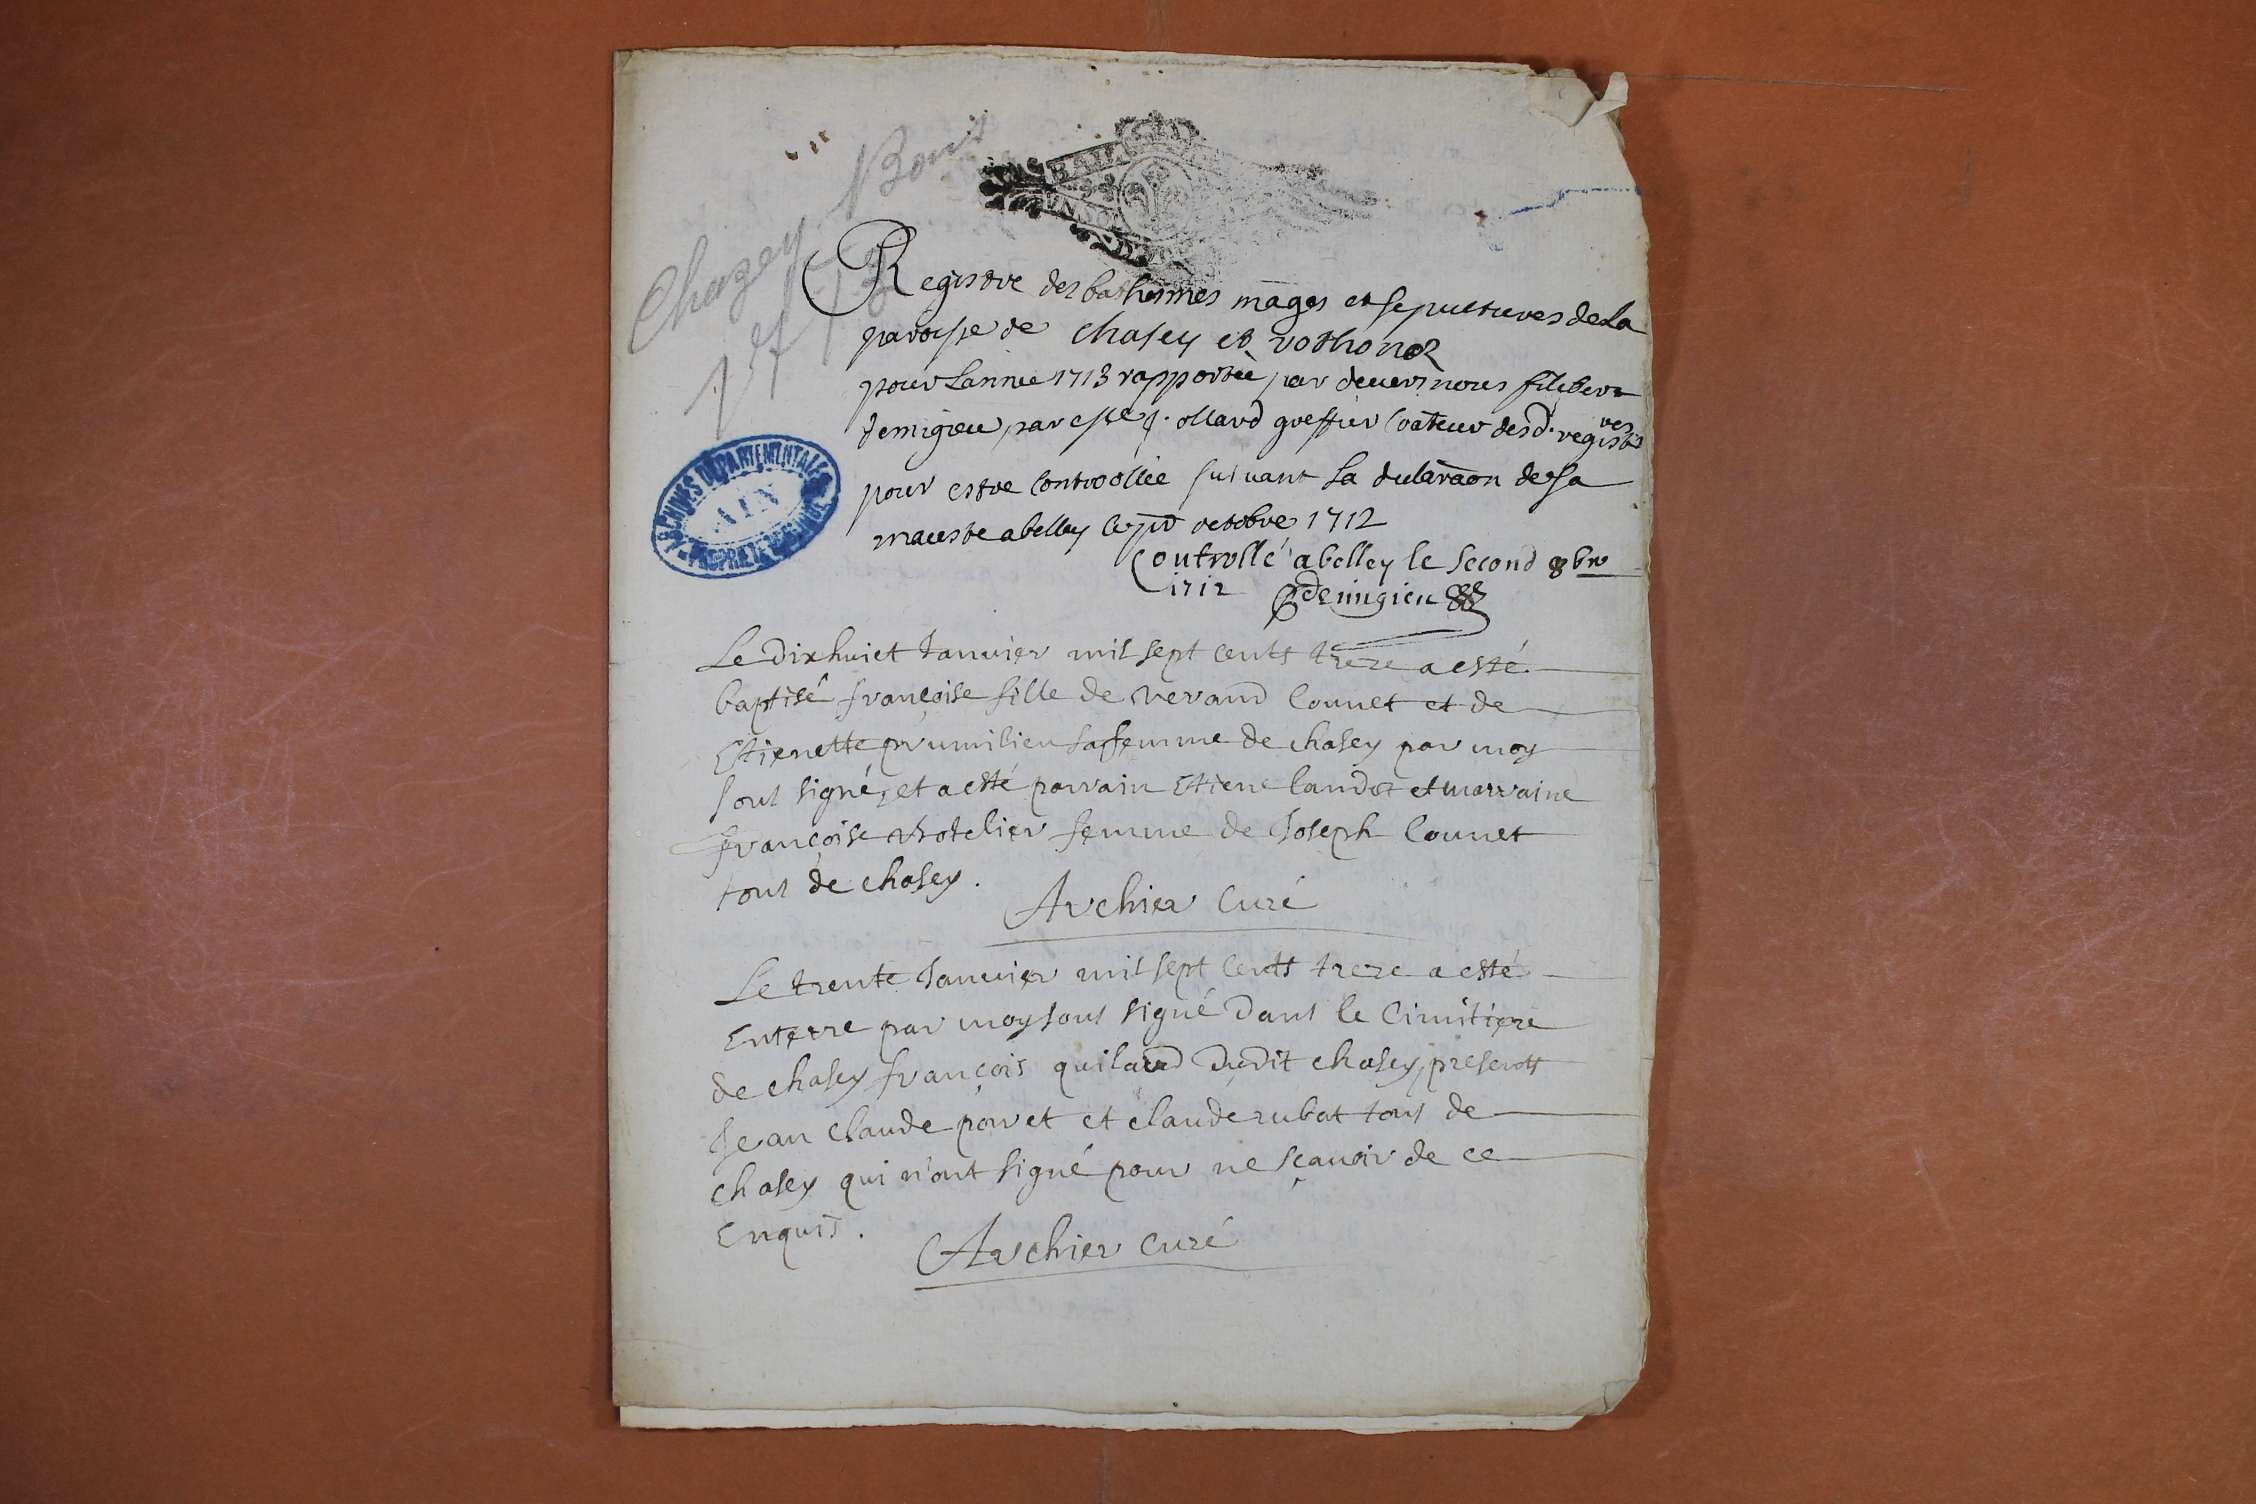 Chazey Bons
1713
Registre des bathesmes mages et sepultures de la
paroisse de chasey et rothonoz
pour Lannee 1713 rapportée par deuers nous filibert
demigieu par Mre J. ollard greffier Conateur desd. registres
pour estre Controollée suiuant La declaraon de sa
maieste abelley le octobre 1712
Controllé abelley le second 8bre
1712 demigieu
ARCHIVES DEPARTEMENTALES
AIN
PROPRIETE PUBLIQUE
Le dixhuict Januier mil sept cents treze a esté
baptisé françoise fille de verand Counet et de
Etienette prumilieu sa femme de chasey par moy
sous signé, et a esté parrain Etiene landot et marraine
françoise Botelier femme de Joseph Counet
tous de chasey.
Archier Curé
Le trente Januier mil sept Cents treze a esté
Enterre par moy sous signé dans le Cimitiere
de chasey françois quilard dudit chasey, presents
Jean claude poret et claude rubat tous de
chasey qui n'ont signé pour ne sçauoir de ce
Enquis.
Archier curé